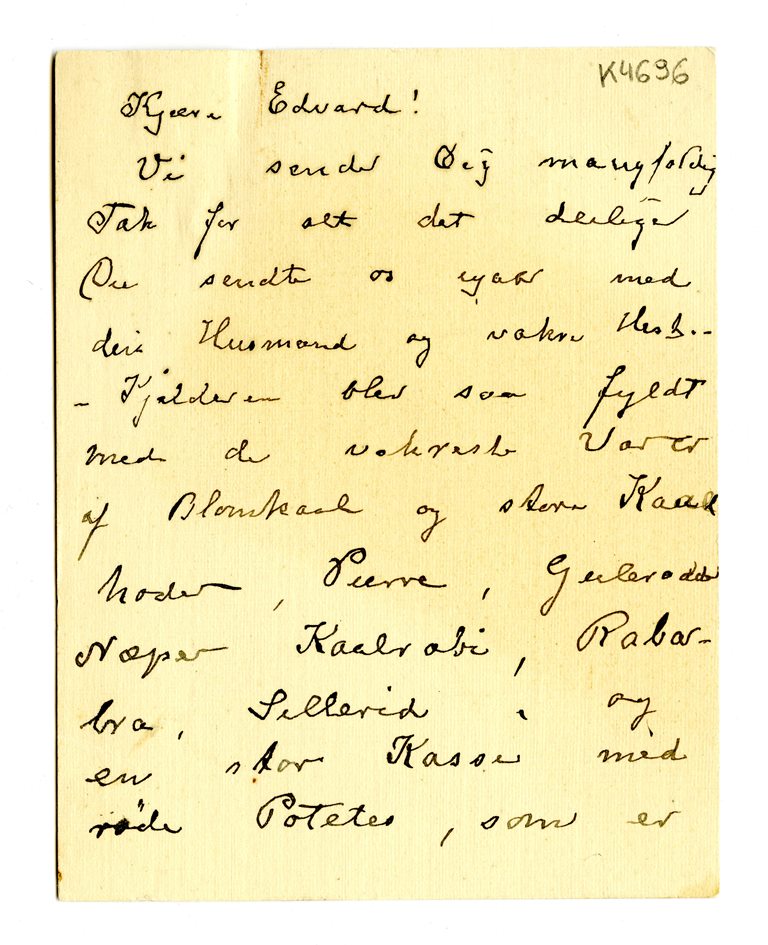 K4696
Kjære Edvard!
Vi sender Dig mangfoldig
Tak for alt det deilige
Du sendte os igaar med
din Husmand og vakre Hest. -
- Kjelderen blev saa fyldt
med de vakreste Varer
af Blomkaal og store Kaal
hoder, Purre, Gulerødder
Næper Kaalrabi, Rabar-
bra, Sellerid, og
en stor Kasse med
røde Potetes, som er